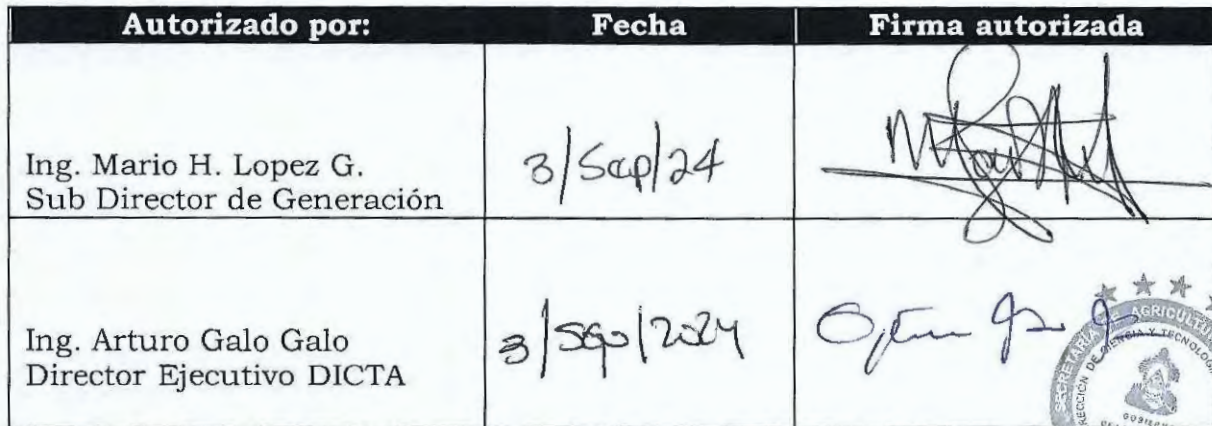 Autorizado por: Fecha Firma autorizada
Ing. Mario H. Lopez G.
Sub Director de Generación
3/Sep/24
Ing. Arturo Galo Galo
Director Ejecutivo DICTA
3/Sep/2024
SECRETARIA AGRICULTU
DIRECCIÓN DE CIENCIA Y TECNOLOG